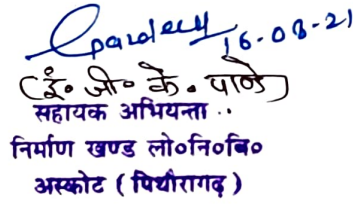 Pandey 16-08-21
(ई० जी० के० पाण्डे)
सहायक अभियन्ता ..
निर्माण खण्ड लो०नि०बि०
अस्कोट ( पिथौरागढ़ )